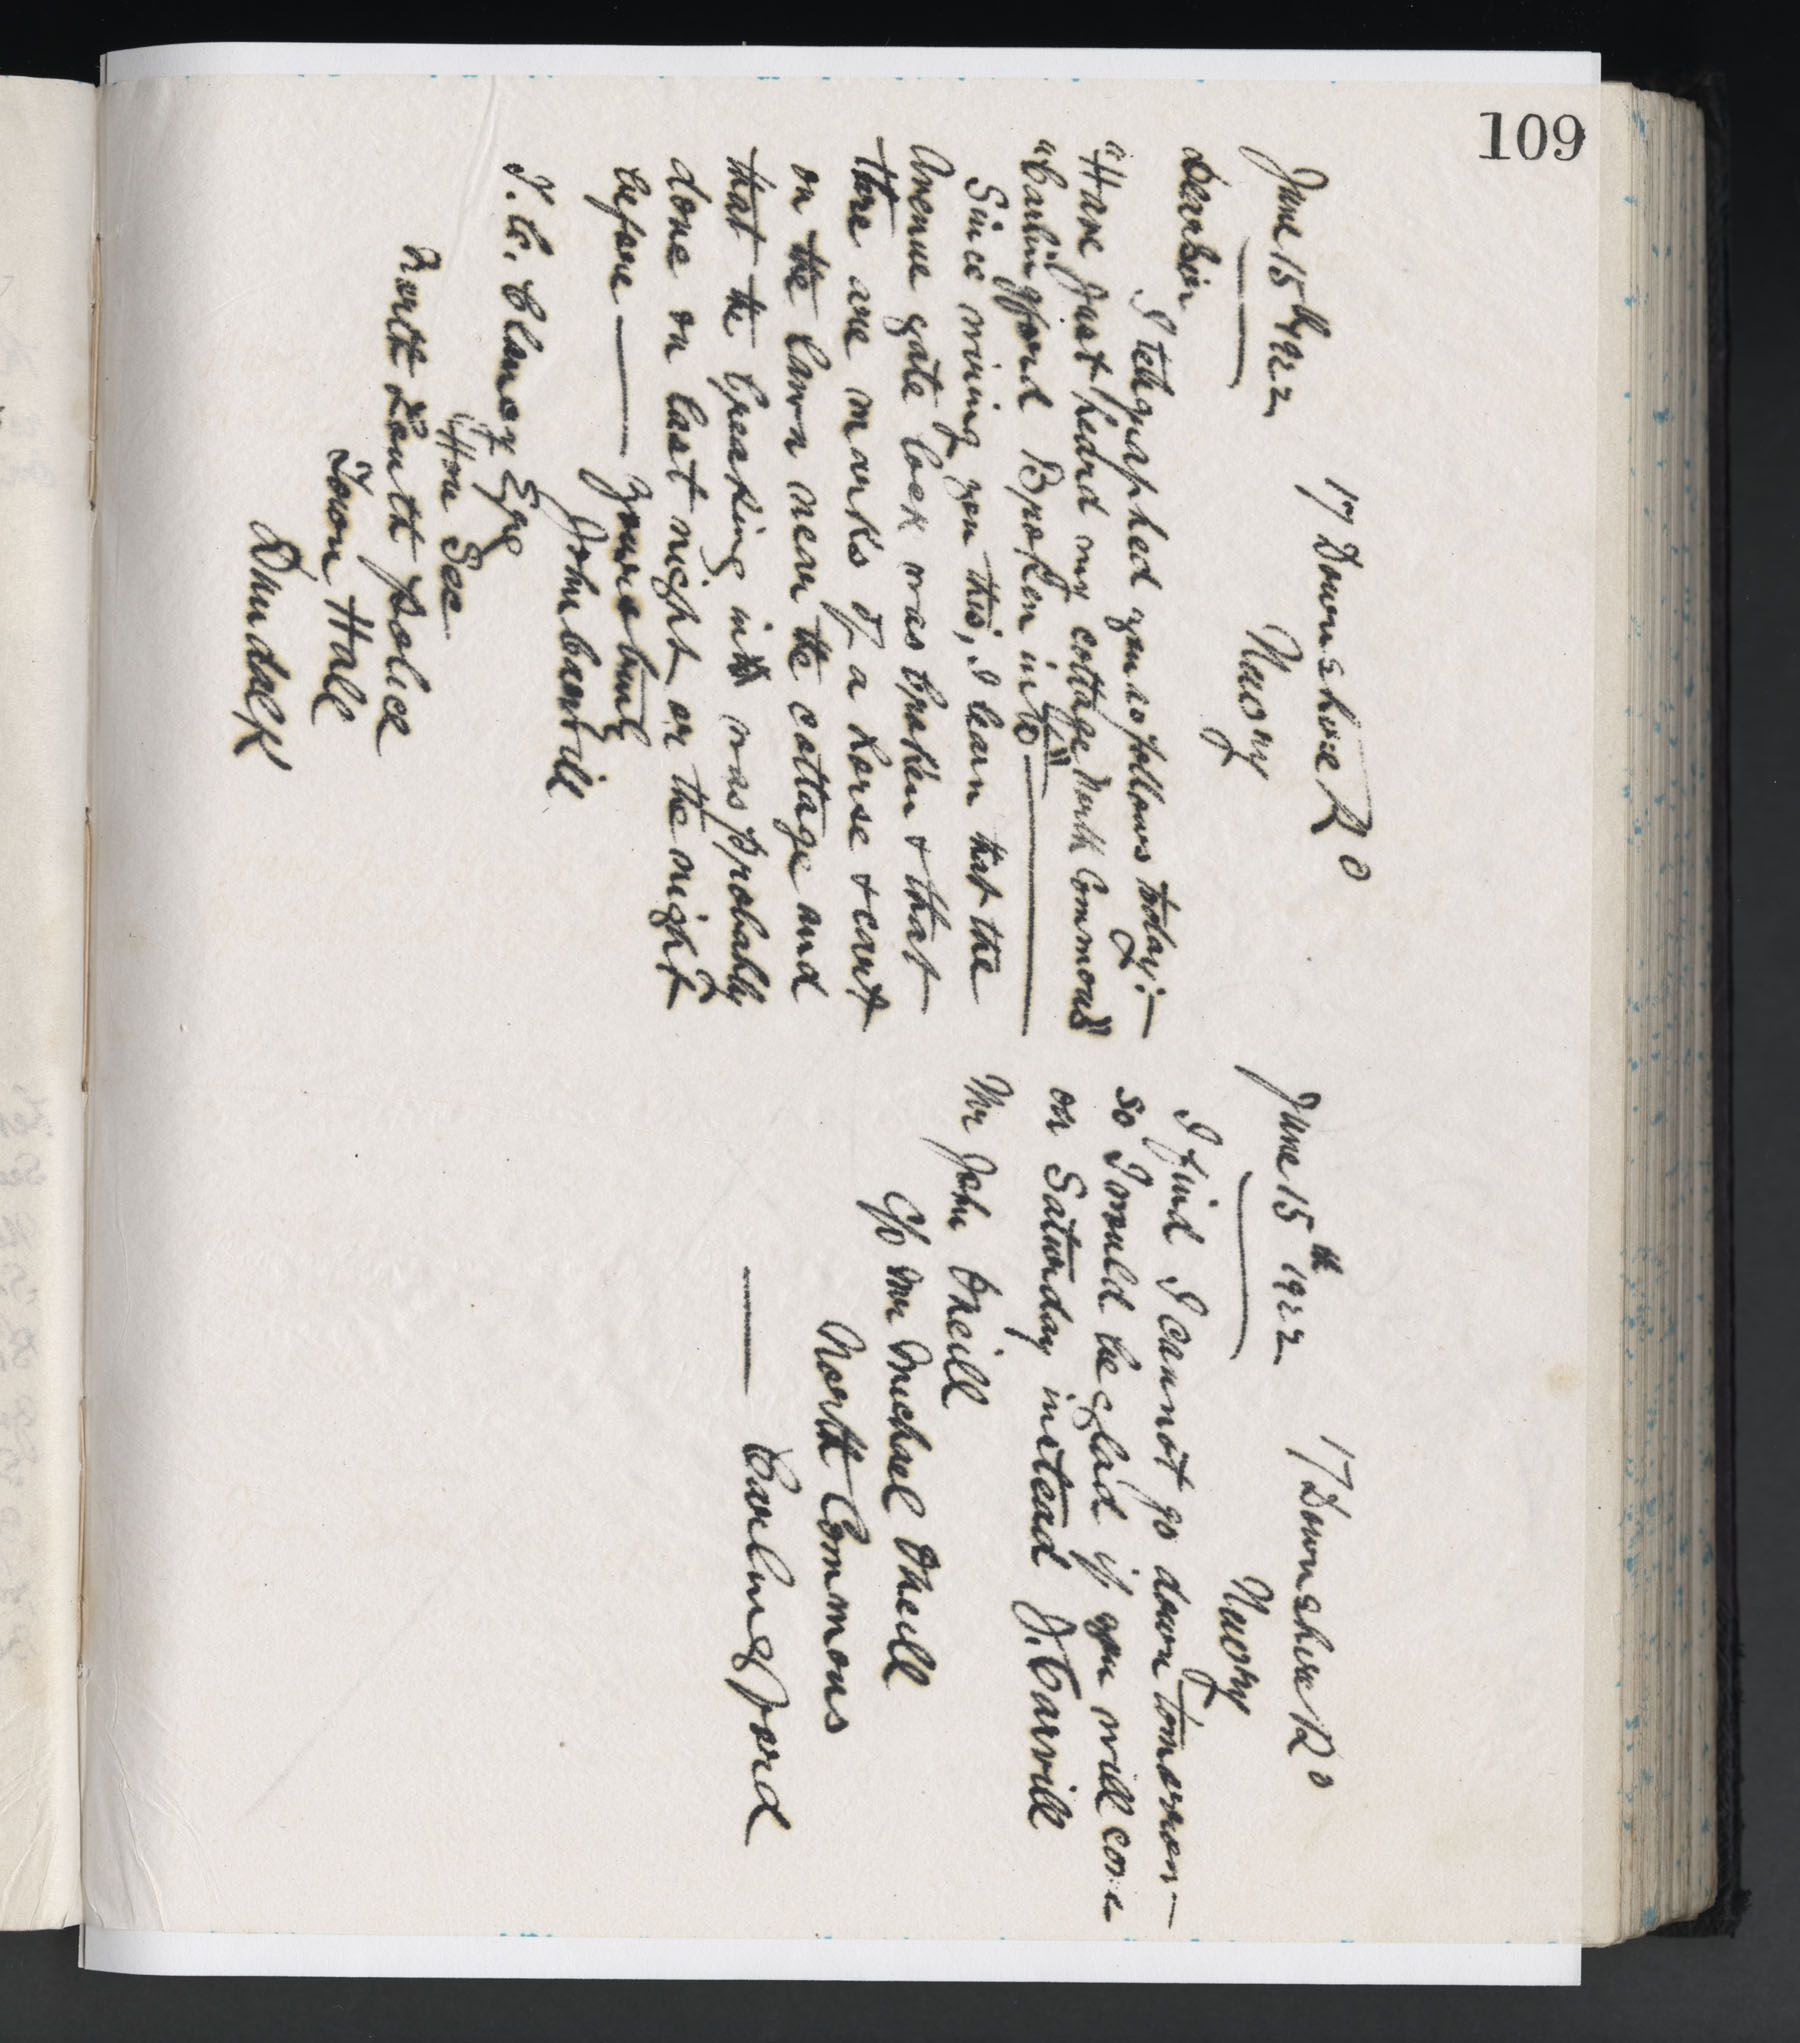 109
17 Downshire Rd
June 15th 1922
Newry
Dear Sir
I telegraphed you as follows today:—
"Have just heard my cottage North Commons"
"Carlingford Broken into"
Since wiring you this, I learn that the
Avenue gate lock was broken & that
there are marks of a horse & cart
on the lawn near the cottage and
that the breaking in was probably
done on last night or the night
before — Yours truly
John Carvill
T. C. Clancy Esq
Hon Sec
North Louth Police
Town Hall
Dundalk
17 Downshire Rd
June 15th 1922
Newry
I find I cannot go down tomorrow—
so I would be glad if you will come
on Saturday instead J. Carvill
Mr John Oneill
c/o Mr Michael Oneill
North Commons
Carlingford